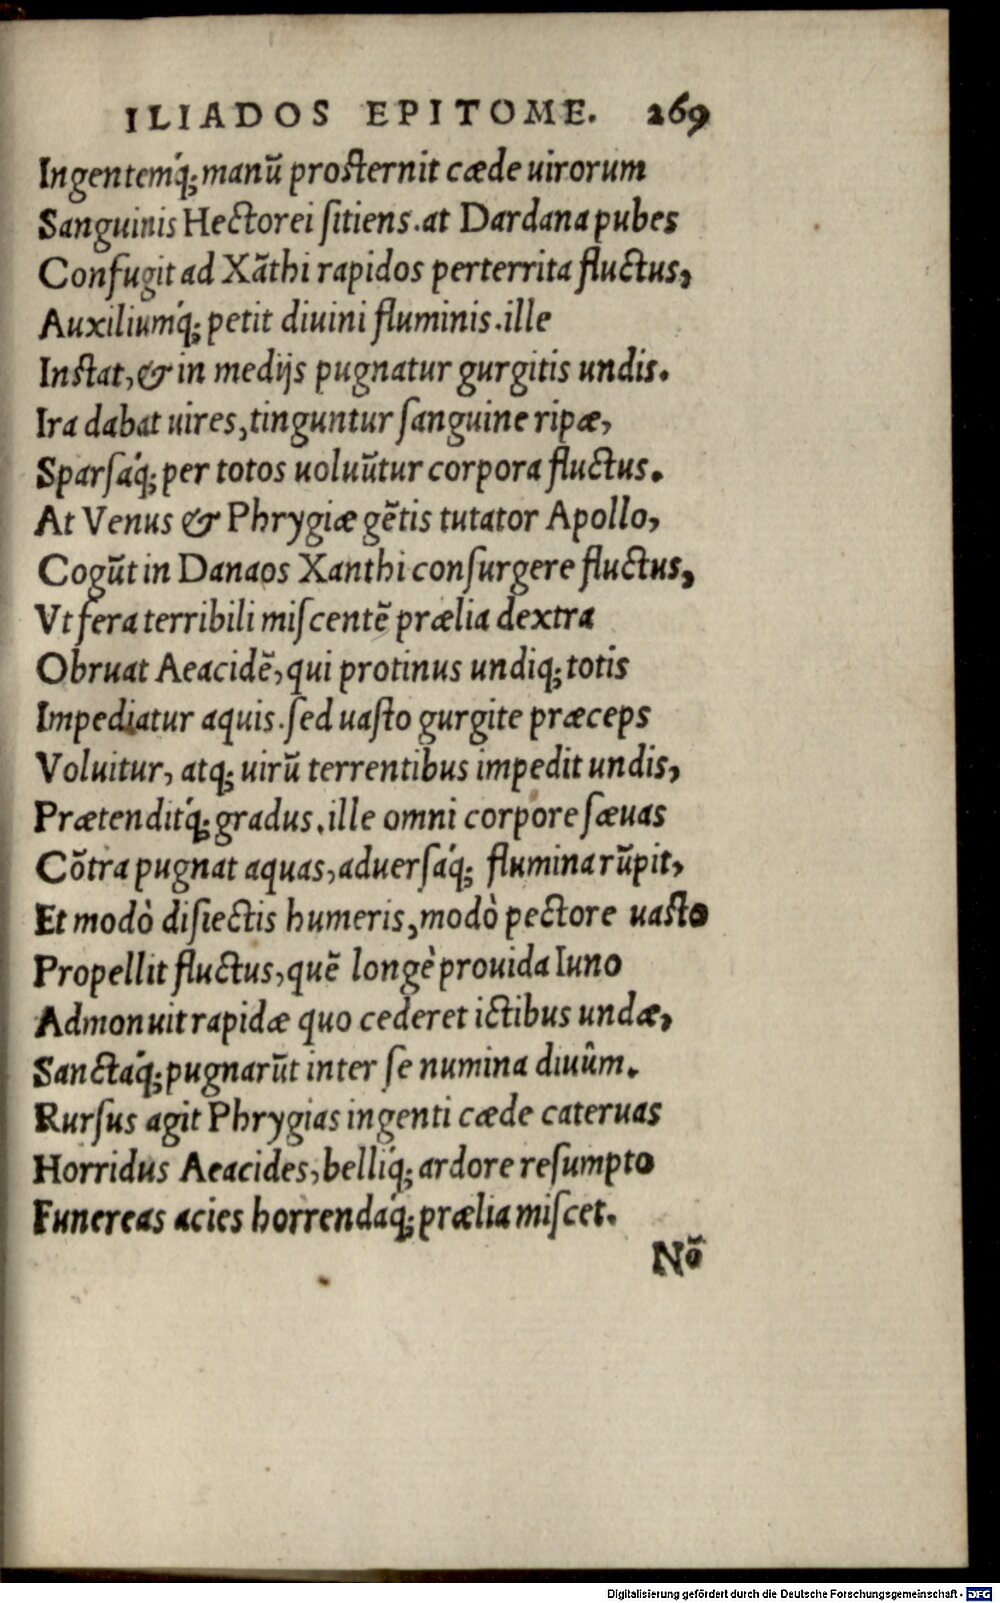 ILIADOS EPITOME. 269
Ingentemq́; manū prosternit cæde uirorum
Sanguinis Hectorei ſitiens. at Dardana pubes
Confugit ad Xāthi rapidos perterrita fluctus,
Auxiliumq́; petit diuini fluminis. ille
Instat, & in medijs pugnatur gurgitis undis.
Ira dabat uires, tinguntur ſanguine ripæ,
Sparſaq́; per totos uoluūtur corpora fluctus.
At Venus & Phrygiæ gētis tutator Apollo,
Cogūt in Danaos Xanthi conſurgere fluctus,
Vt fera terribili miſcentē prælia dextra
Obruat Aeacidē, qui protinus undiq; totis
Impediatur aquis. ſed uaſto gurgite præceps
Voluitur, atq; uirū terrentibus impedit undis,
Prætenditq́; gradus. ille omni corpore ſæuas
Cōtra pugnat aquas, aduerſaq́; flumina rūpit,
Et modò diſiectis humeris, modò pectore uasto
Propellit fluctus, quē longè prouida Iuno
Admonuit rapidæ quo cederet ictibus undæ,
Sanctaq́; pugnarūt inter ſe numina diuûm.
Rurſus agit Phrygias ingenti cæde cateruas
Horridus Aeacides, belliq́; ardore reſumpto
Funereas acies horrendaq́; prælia miſcet.
Nō
Digitalisierung gefördert durch die Deutsche Forschungsgemeinschaft - DFG